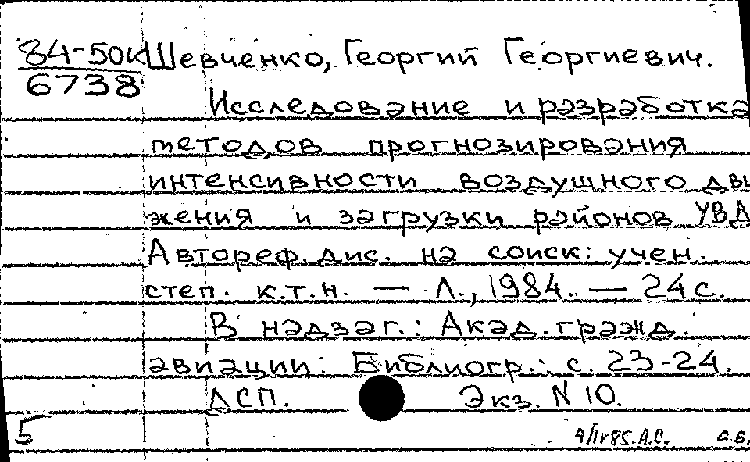 84-50к Шевченко, Георгий Георгиевич.
6738
Исследование и разработка
методов прогнозирования
интенсивности воздушного дви
жения и загрузки районов УВД
Автореф. дис. на соиск. учен.
степ. к.т.н. — Л., 1984. — 24 с.
В надзаг.: Акад. гражд.
авиации. Библиогр.: с. 23-24.
ДСП. Экз. N 10.
5